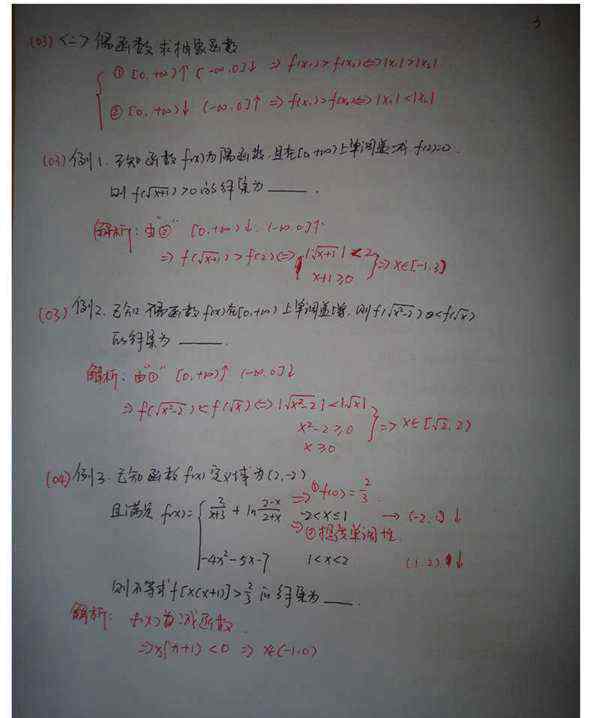 3
(03) <二> 偶函数求抽象函数
① [0,+∞)↑ (-∞,0]↓ ⇒ f(x₁)>f(x₂)⇔|x₁|>|x₂|
② [0,+∞)↓ (-∞,0]↑ ⇒ f(x₁)>f(x₂)⇔|x₁|<|x₂|
(03) 例1. 已知函数f(x)为偶函数,且在[0,+∞)上单调递减 f(2)=0.
则 f(√x+1)>0的解集为 ____.
解析: 由"②" [0,+∞)↓. (-∞,0]↑
⇒ f(√x+1)>f(2)⇔ { |√x+1|<2
x+1≥0 } ⇒x∈[-1,3)
(03) 例2. 已知偶函数f(x)在[0,+∞)上单调递增,则f(√x²-2)<f(√x)
的解集为 ____.
解析: 由"①" [0,+∞)↑ (-∞,0]↓
⇒ f(√x²-2)<f(√x)⇔|√x²-2|<|√x|
x²-2≥0
x≥0 } ⇒ x∈[√2,2)
(04) 例3. 已知函数f(x)定义域为(2,-2)
⇒① f(0)=2/3.
且满足 f(x)= { 2/x+3 + ln 2-x/2+x -2<x≤1 → (-2,1]↓
⇒② 想是单调性.
-4x²-5x-7 1<x<2 (1,2)↓
则不等式f[x(x+1)]>2/3的解集为 ____.
解析: f(x)为减函数.
⇒x(x+1)<0 ⇒ x∈(-1,0)